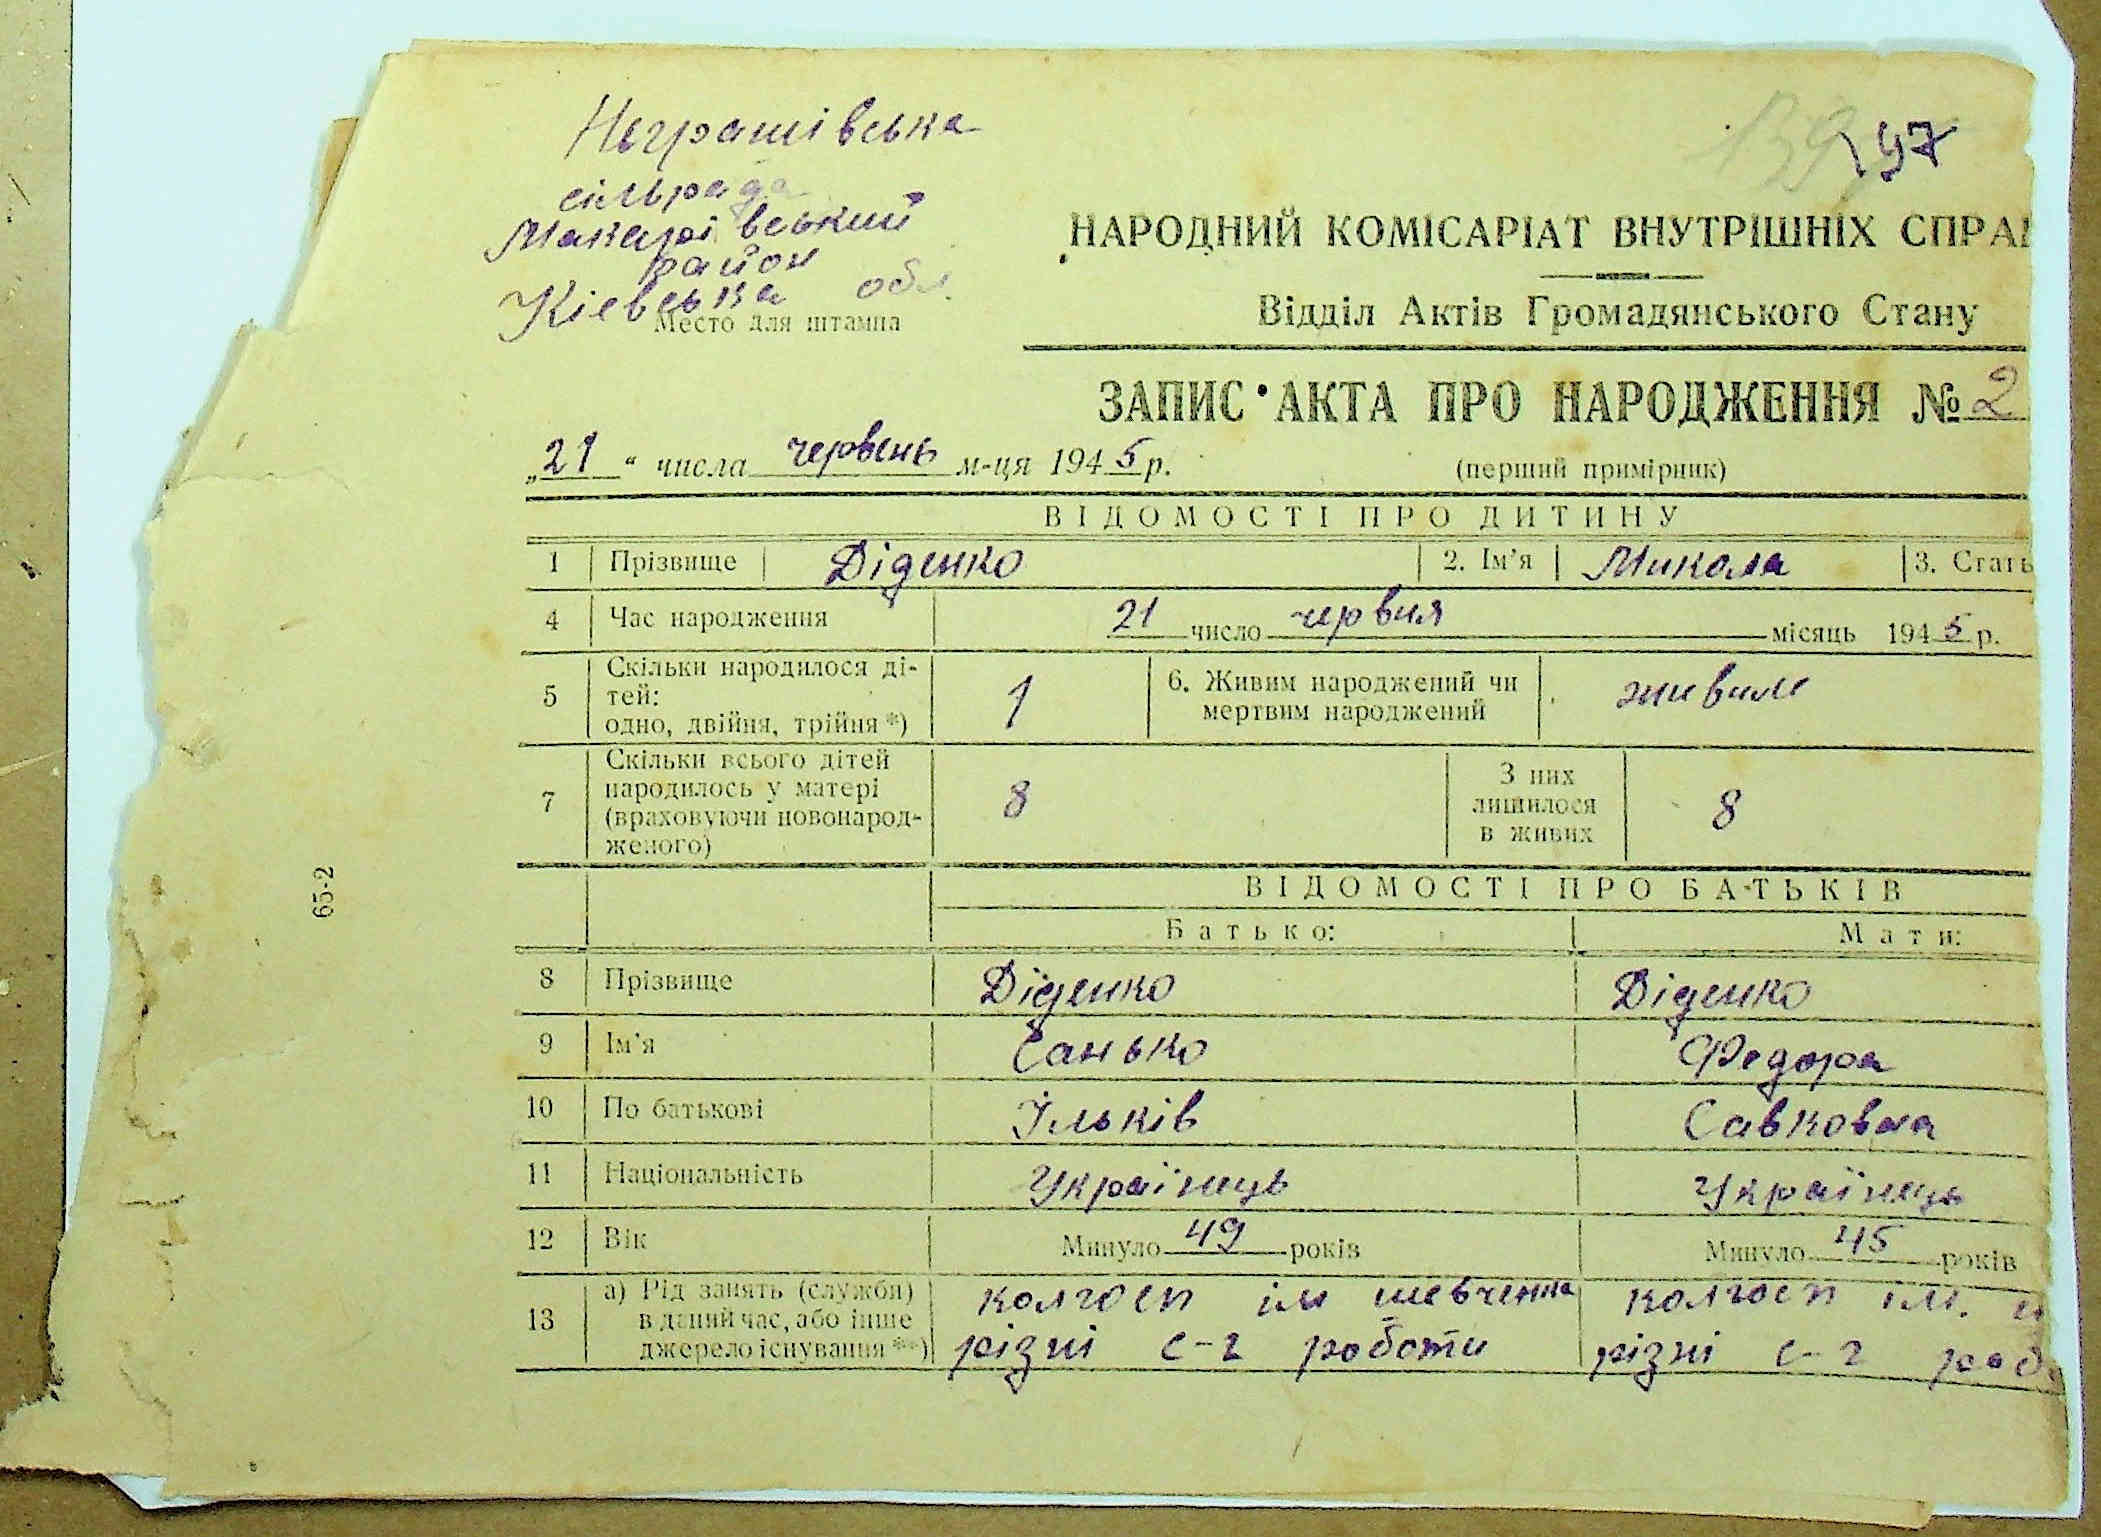 Неграшівська
сільрада
Макарівський
район
Кіевська обл.
Место для штампа
197
НАРОДНИЙ КОМІСАРІАТ ВНУТРІШНІХ СПРА
Відділ Актів Громадянського Стану
ЗАПИС АКТА ПРО НАРОДЖЕННЯ № 2
„21“ числа червень м-ця 1945 р.
(перший примірник)
ВІДОМОСТІ ПРО ДИТИНУ
1 Прізвище Діденко 2. Ім'я Микола 3. Стать
4 Час народження 21 число червня місяць 1945 р.
5 Скільки народилося ді-
тей:
одно, двійня, трійня *) 1
6. Живим народжений чи
мертвим народжений живим
7 Скільки всього дітей
народилось у матері
(враховуючи новонарод-
женого) 8
З них
лишилося
в живих 8
ВІДОМОСТІ ПРО БАТЬКІВ
Батько: Мати:
8 Прізвище Діденко Діденко
9 Ім'я Санько Федора
10 По батькові Ільків Савковна
11 Національність Українець Українець
12 Вік Минуло 49 років Минуло 45 років
13 а) Рід занять (служби)
в даний час, або інше
джерело існування **)
колгосп ім шевченка
різні с-г роботи
колгосп ім.
різні с-г роб
65-2